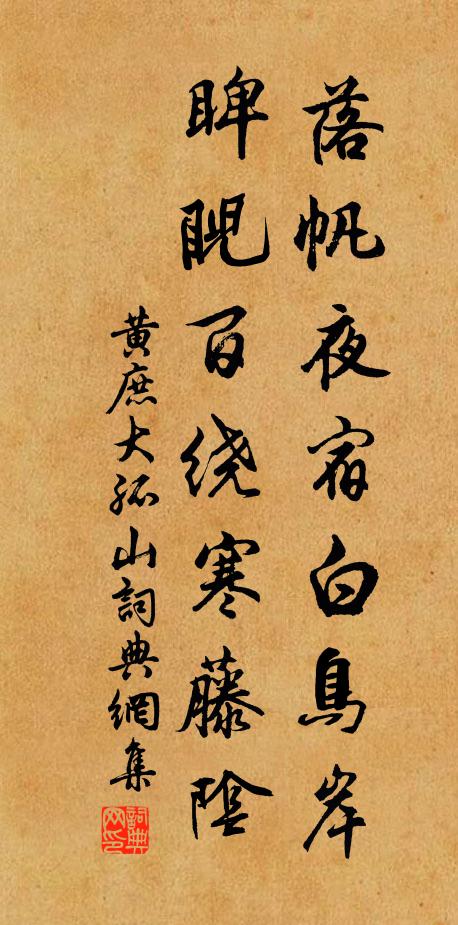 落帆夜宿白鳥岸
睥睨百繞寒藤陰
黄庶大孤山詞典網集
詞典网印